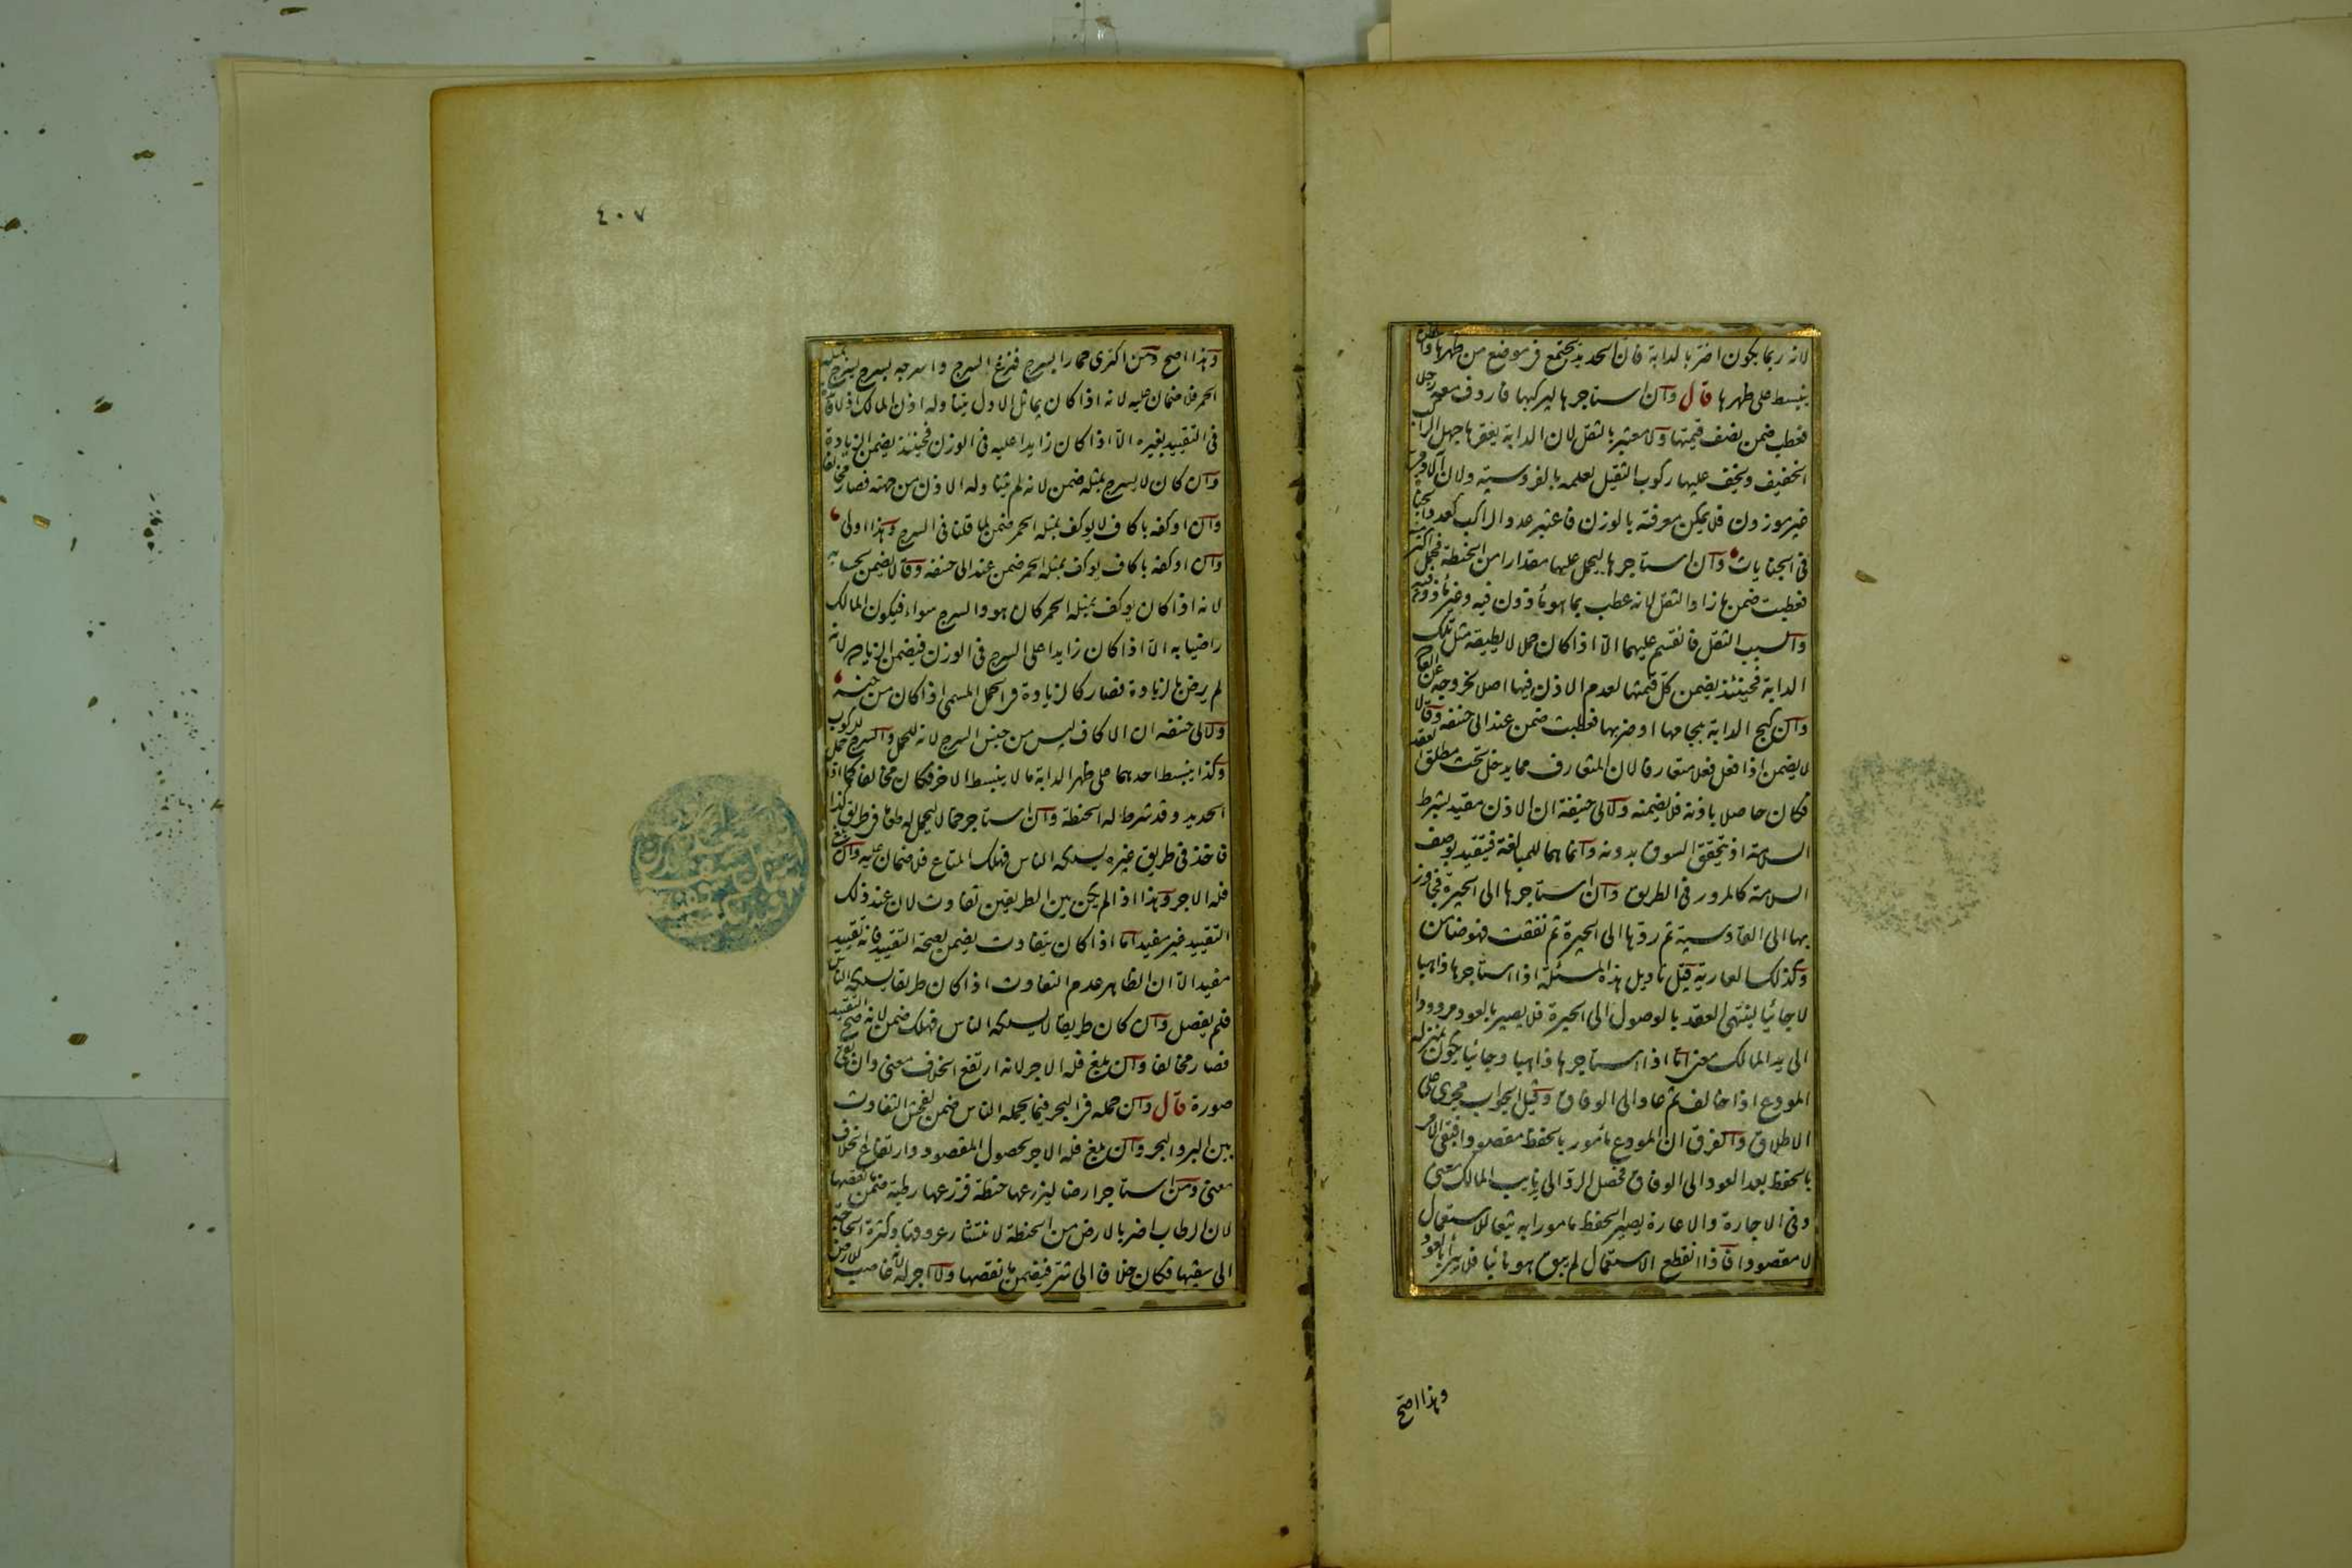 لانه ربما يكون اضر بالدابة فان الحديد يجتمع فى موضع من ظهرها والقطن
ينبسط على ظهرها قال وان استاجرها ليركبها فاردف معه رجلا
فعطب ضمن نصف قيمتها ولا معتبر بالثقل لان الدابة يعقرها جهل الراكب
الخفيف ويخف عليها ركوب الثقيل لعلمه بالفروسية ولان الآدمى
غير موزون فلا يمكن معرفته بالوزن فاعتبر عدد الراكب كعدد الجناة
فى الجنايات وان استاجرها ليحمل عليها مقدارا من الحنطة فحمل اكثر منه
فعطبت ضمن ما زاد الثقل لانه عطب بما هو مأذون فيه وغير مأذون فيه
والسبب الثقل فانقسم عليهما الا اذا كان حملا لا يطيقه مثل تلك
الدابة فحينئذ يضمن كل قيمتها لعدم الاذن فيها اصلا لخروجه عن العادة
وان كبح الدابة بلجامها او ضربها فعطبت ضمن عند ابى حنيفه وقالا
لا يضمن اذا فعل فعلا متعارفا لان المتعارف مما يدخل تحت مطلق العقد
فكان حاصلا باذنه فلا يضمنه ولابى حنيفة ان الاذن مقيد بشرط
السلامة اذ يتحقق السوق بدونه وانما هما للمبالغة فيتقيد بوصف
السلامة كالمرور فى الطريق وان استاجرها الى الحيرة فجاوز
بها الى القادسية ثم ردها الى الحيرة ثم نفقت فهو ضامن
وكذلك العارية قيل تاويل هذه المسئلة اذا استاجرها ذاهبا
لا جائيا لينتهى العقد بالوصول الى الحيرة فلا يصير بالعود مردودا
الى يد المالك معنى اما اذا استاجرها ذاهبا وجائيا يكون بمنزلة
المودع اذا خالف ثم عاد الى الوفاق وقيل الجواب مجرى على
الاطلاق والفرق ان المودع مأمور بالحفظ مقصودا فبقى الامر
بالحفظ بعد العود الى الوفاق فحصل الرد الى نايب المالك معنى
وفى الاجارة والاعارة يصير الحفظ مامورا به تبعا للاستعمال
لا مقصودا فاذا انقطع الاستعمال لم يبق هو نائبا فلا يبرأ بالعود
وهذا اصح
٤٠٧
وهذا اصح ومن اكترى حمارا بسرج فنزع السرج واسرجه بسرج يسرج بمثله
الحمر فلا ضمان عليه لانه اذا كان يماثل الاول يتناوله اذن المالك اذ لا فائدة
فى التقييد بغيره الا اذا كان زايدا عليه فى الوزن فحينئذ يضمن الزيادة
وان كان لا يسرج بمثله ضمن لانه لم يتناوله الاذن من جهته فصار مخالفا
وان اوكفه باكاف لا يوكف بمثله الحمر ضمن لما قلنا فى السرج وهذا اولى
وان اوكفه باكاف يوكف بمثله الحمر ضمن عند ابى حنيفه وقالا يضمن بحسابه
لانه اذا كان يوكف بمثله الحمر كان هو والسرج سواء فيكون المالك
راضيا به الا اذا كان زايدا على السرج فى الوزن فيضمن الزيادة لانه
لم يرض بالزيادة فصار كالزيادة فى الحمل المسمى اذا كان من جنسه
ولابى حنيفه ان الاكاف ليس من جنس السرج لانه للحمل والسرج للركوب
وكذا ينبسط احدهما على ظهر الدابة ما لا ينبسط الاخر فكان مخالفا كما اذا حمل
الحديد وقد شرط له الحنطة وان استاجر حمالا ليحمل له طعاما فى طريق كذا
فاخذ فى طريق غيره يسلكه الناس فهلك المتاع فلا ضمان عليه وان بلغ
فله الاجر وهذا اذا لم يكن بين الطريقين تفاوت لان عند ذلك
التقييد غير مفيد اما اذا كان يتفاوت يضمن لصحة التقييد فانه تقييد
مفيد الا ان الظاهر عدم التفاوت اذا كان طريقا يسلكه الناس
فلم يفصل وان كان طريقا لا يسلكه الناس فهلك ضمن لانه صح التقييد
فصار مخالفا وان بلغ فله الاجر لانه ارتفع الخلاف معنى وان بقى
صورة قال وان حمله فى البحر فيما يحمله الناس ضمن لفحش التفاوت
بين البر والبحر وان بلغ فله الاجر لحصول المقصود وارتفاع الخلاف
معنى ومن استاجر ارضا ليزرعها حنطة فزرعها رطبة ضمن ما نقصها
لان الرطاب اضر بالارض من الحنطة لانتشار عروقها وكثرة الحاجة
الى سقيها فكان خلافا الى شر فيضمن ما نقصها ولا اجر له لانه غاصب للارض